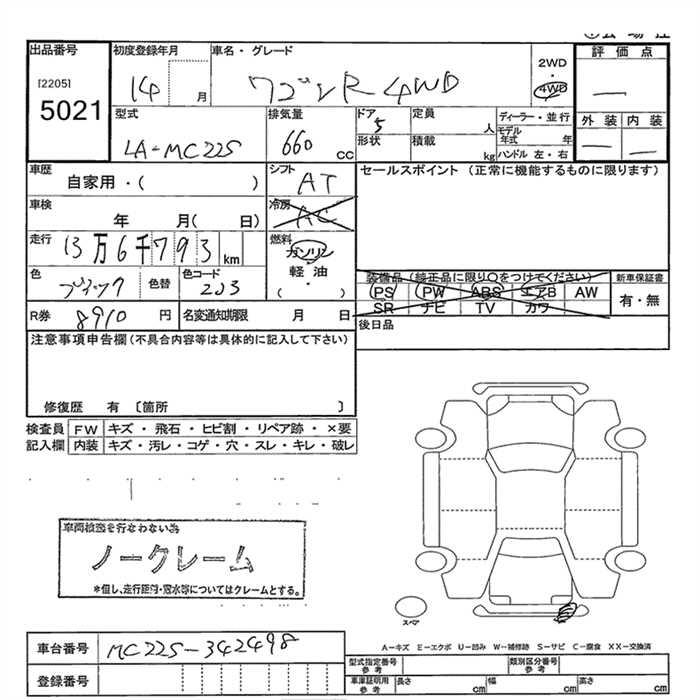 出品番号 初度登録年月 車名・グレード 2WD・4WD 評価点
[2205]
5021
14 月 ワゴンR 4WD
型式 排気量 ドア 定員 ディーラー・並行 外装 内装
LA-MC22S 660 CC 5 人 モデル年式 年
形状 積載 kg ハンドル 左・右
車歴 シフト セールスポイント (正常に機能するものに限ります)
自家用・( ) AT
車検 冷房
年 月( 日) AC
走行 燃料
13万6千793km ガソリン・軽油・( )
色 色替 色コード 装備品 (純正品に限り○をつけてください) 新車保証書
ブラック 203 PS PW ABS エアB AW 有・無
SR ナビ TV カワ
R券 8910 円 名変通知期限 月 日 後日品
注意事項申告欄(不具合内容等は具体的に記入して下さい)
修復歴 有 〔箇所 〕
検査員 FW キズ・飛石・ヒビ割・リペア跡・×要
記入欄 内装 キズ・汚レ・コゲ・穴・スレ・キレ・破レ
車両検査を行なわない為
ノークレーム
*但し、走行距離・冠水等についてはクレームとする。
スペア
A-キズ E-エクボ U-凹み W-補修跡 S-サビ C-腐食 XX-交換済
車台番号 MC22S-342498
型式指定番号 参考 類別区分番号 参考
登録番号 車庫証明用 参考 長さ cm 幅 cm 高さ cm